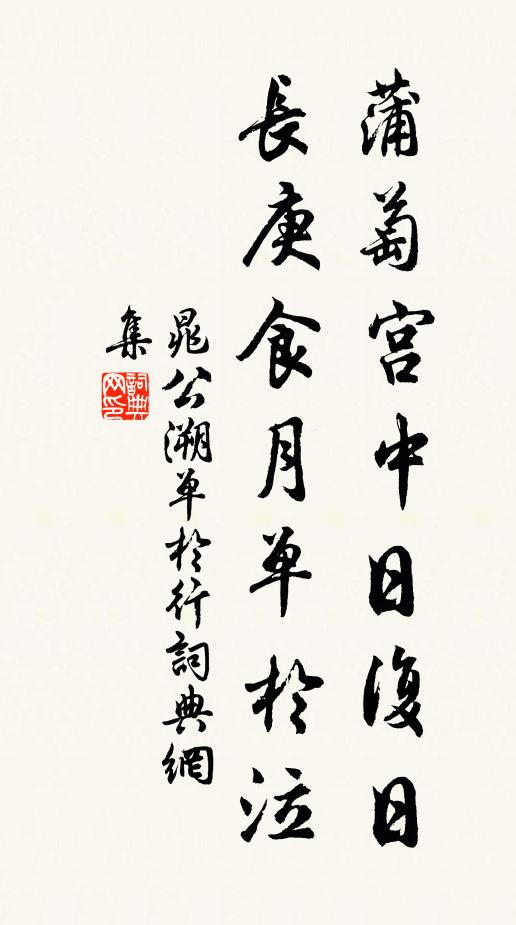 蒲萄宮中日復日
長庚食月单於泣
晁公溯单於行詞典網
集
詞典
网印